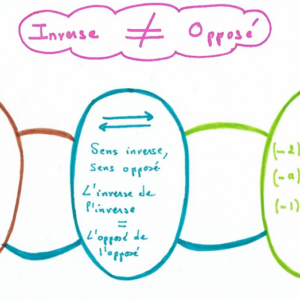 Inverse ≠ Opposé
Sens inverse,
Sens opposé.
L'inverse de
l'inverse
=
L'opposé de
l'opposé
(-2)
(-a)
(-1)